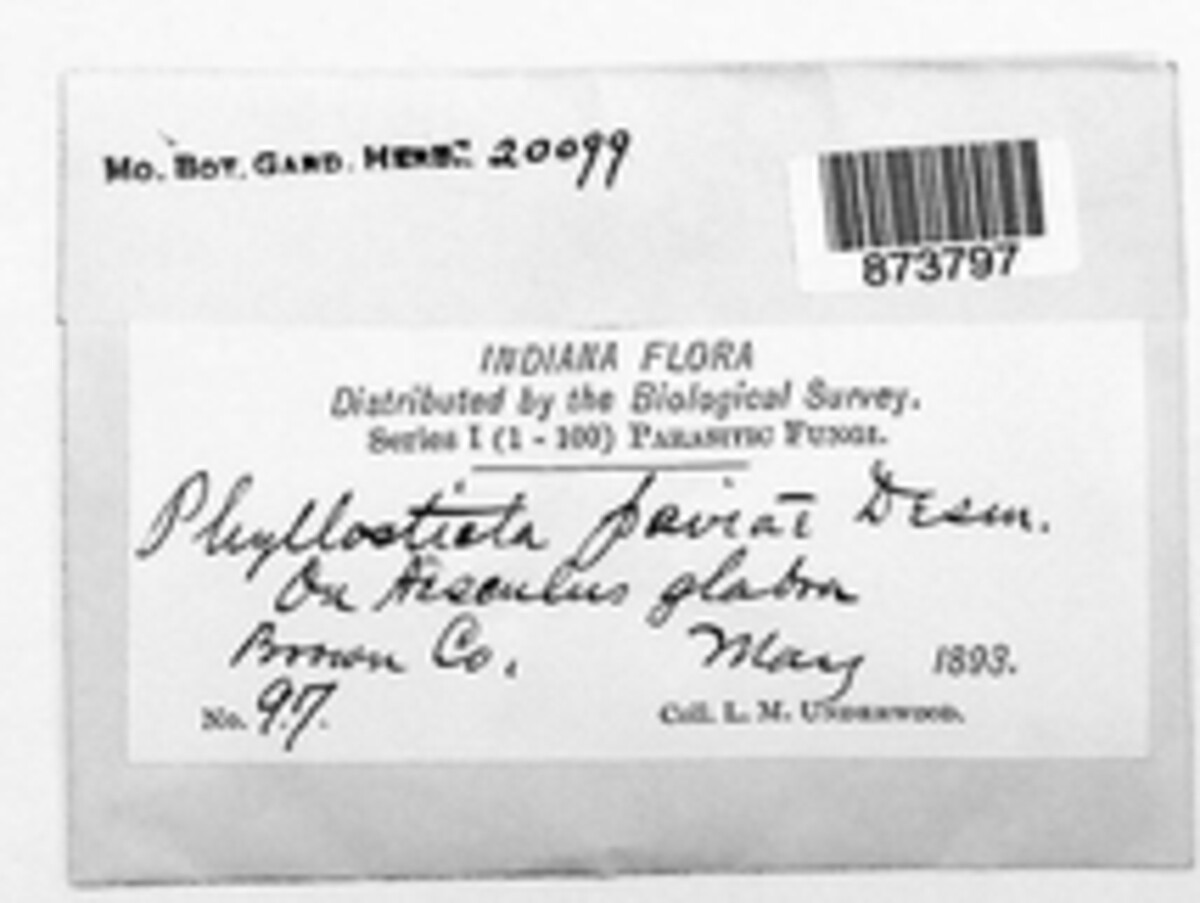 Mo. Bot. Gard. Herb. 20099
873797
INDIANA FLORA
Distributed by the Biological Survey.
Series I (1 - 100) Parasitic Fungi.
Phyllosticta paviae Desm.
On Aesculus glabra
Brown Co. May 1893.
No. 97. Coll. L. M. Underwood.